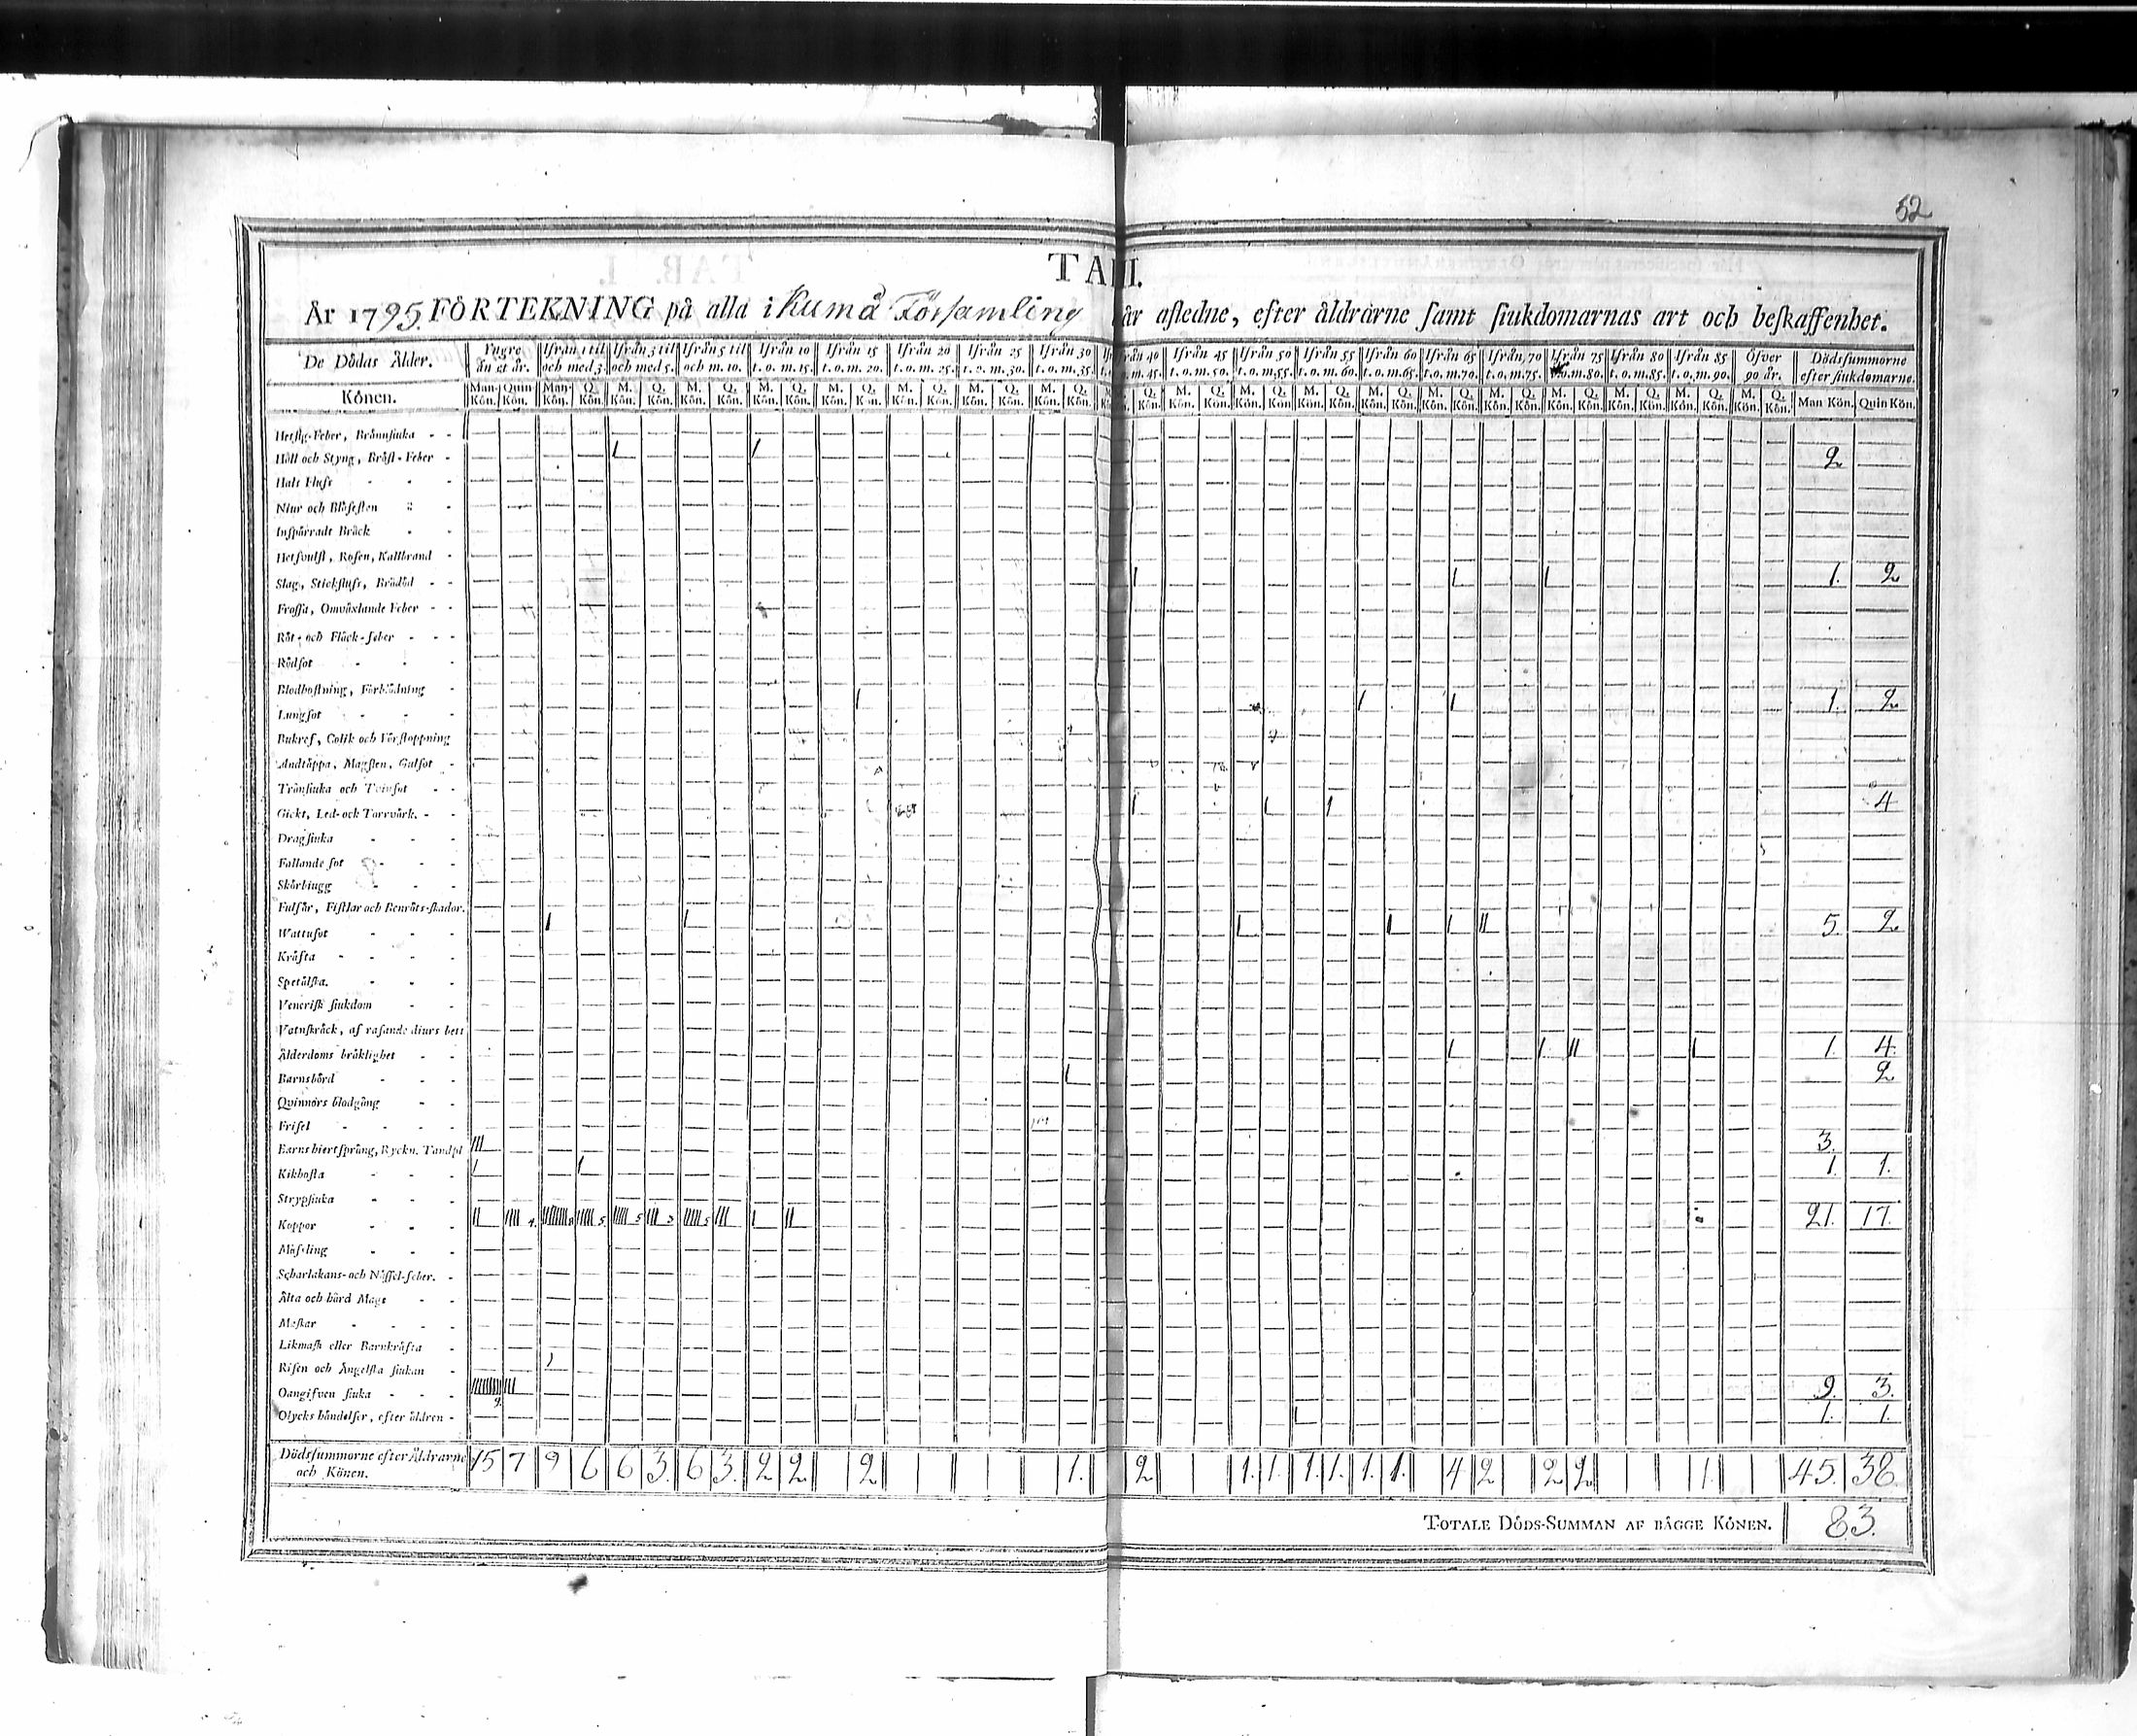 52
TA II.
År 1795. FÖRTEKNING på alla i Kumå Församling år afledne, efter åldrarne samt siukdomarnas art och beskaffenhet.
De Dödas Ålder. Yngre än et år. Ifrån 1 til och med 3. Ifrån 3 til och med 5. Ifrån 5 til och m. 10. Ifrån 10 t. o. m. 15. Ifrån 15 t. o. m. 20. Ifrån 20 t. o. m. 25. Ifrån 25 t. o. m. 30. Ifrån 30 t. o. m. 35. rån 40 m. 45. Ifrån 45 t. o. m. 50. Ifrån 50 t. o. m. 55. Ifrån 55 t. o. m. 60. Ifrån 60 t. o. m. 65. Ifrån 65 t. o. m. 70. Ifrån 70 t. o. m. 75. Ifrån 75 t. o. m. 80. Ifrån 80 t. o. m. 85. Ifrån 85 t. o. m. 90. Öfver 90 år. Dödssummorne efter siukdomarne.
Könen. Man Kön. Quin Kön. Man Kön. Q. Kön. M. Kön. Q. Kön. M. Kön. Q. Kön. M. Kön. Q. Kön. M. Kön. Q. Kön. M. Kön. Q. Kön. M. Kön. Q. Kön. M. Kön. Q. Kön. Q. Kön. M. Kön. Q. Kön. M. Kön. Q. Kön. M. Kön. Q. Kön. M. Kön. Q. Kön. M. Kön. Q. Kön. M. Kön. Q. Kön. M. Kön. Q. Kön. M. Kön. Q. Kön. M. Kön. Q. Kön. M. Kön. Q. Kön. Man Kön. Quin Kön.
Hetsig-Feber, Brännsiuka
Håll och Styng, Bröst-Feber 1 1 2
Hals Fluss
Niur och Blåsesten
Inspärradt Bråck
Hetsvulst, Rosen, Kallbrand
Slag, Stickfluss, Brådöd 1 1 1 1. 2
Frossa, Omväxlande Feber
Röt- och Fläck-feber
Rödsot
Blodhostning, Förblödning
Lungsot 1 1 1 1. 2
Bukref, Colik och Förstoppning
Andtäppa, Magsten, Gulsot
Trånsiuka och Tvinsot
Gickt, Led- och Torrvärk. 1 1 1 4
Dragsiuka
Fallande sot
Skörbiugg
Fulsår, Fistlar och Benröts-skador.
Wattusot 1 1 1 1 1 11 5. 2
Kräfta
Spetälska.
Venerisk siukdom
Vatnskräck, af rasande diurs bett
Ålderdoms bräklighet 1 1 11 1 1. 4.
Barnsbörd 1 2
Qvinnors blodgång
Frisel
Barns hiertsprång, Ryckn. Tandsl 111 3.
Kikhosta 1 1 1. 1.
Strypsiuka
Koppor 11 1111 4. 11111111 8 11111 5. 11111 5 111 3 11111 5 111 1 11 21. 17.
Mässling
Scharlakans- och Nässel-feber.
Älta och hård Mage
Maskar
Likmask eller Barnkräfta
Risen och Ängelska siukan 1
Oangifven siuka 111111111 9. 111 9. 3.
Olycks händelser, efter äldren 1 1 1. 1.
Dödssummorne efter Åldrarne och Könen. 15 7 9 6 6 3. 6 3. 2 2 2 1. 2 1. 1. 1. 1. 1. 1. 4 2 2 2 1. 45. 38.
TOTALE DÖDS-SUMMAN AF BÄGGE KÖNEN. 83.